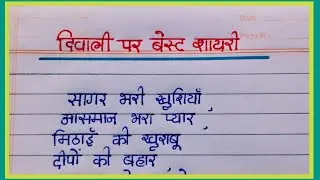 दिवाली पर बेस्ट शायरी
सागर भरी खुशियाँ,
आसमान भरा प्यार,
मिठाइँ की खुशबू
दीपों की बहार